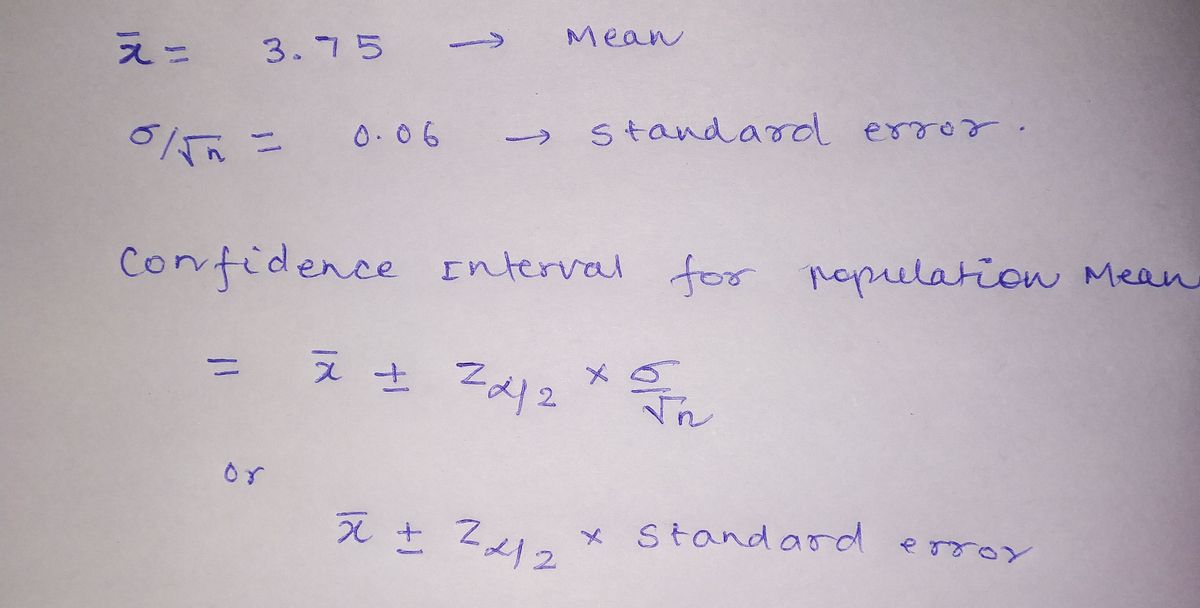 x̄ = 3.75 → Mean
σ/√n = 0.06 → standard error.
Confidence Interval for population Mean
= x̄ ± Zα/2 × σ/√n
or
x̄ ± Zα/2 × Standard error